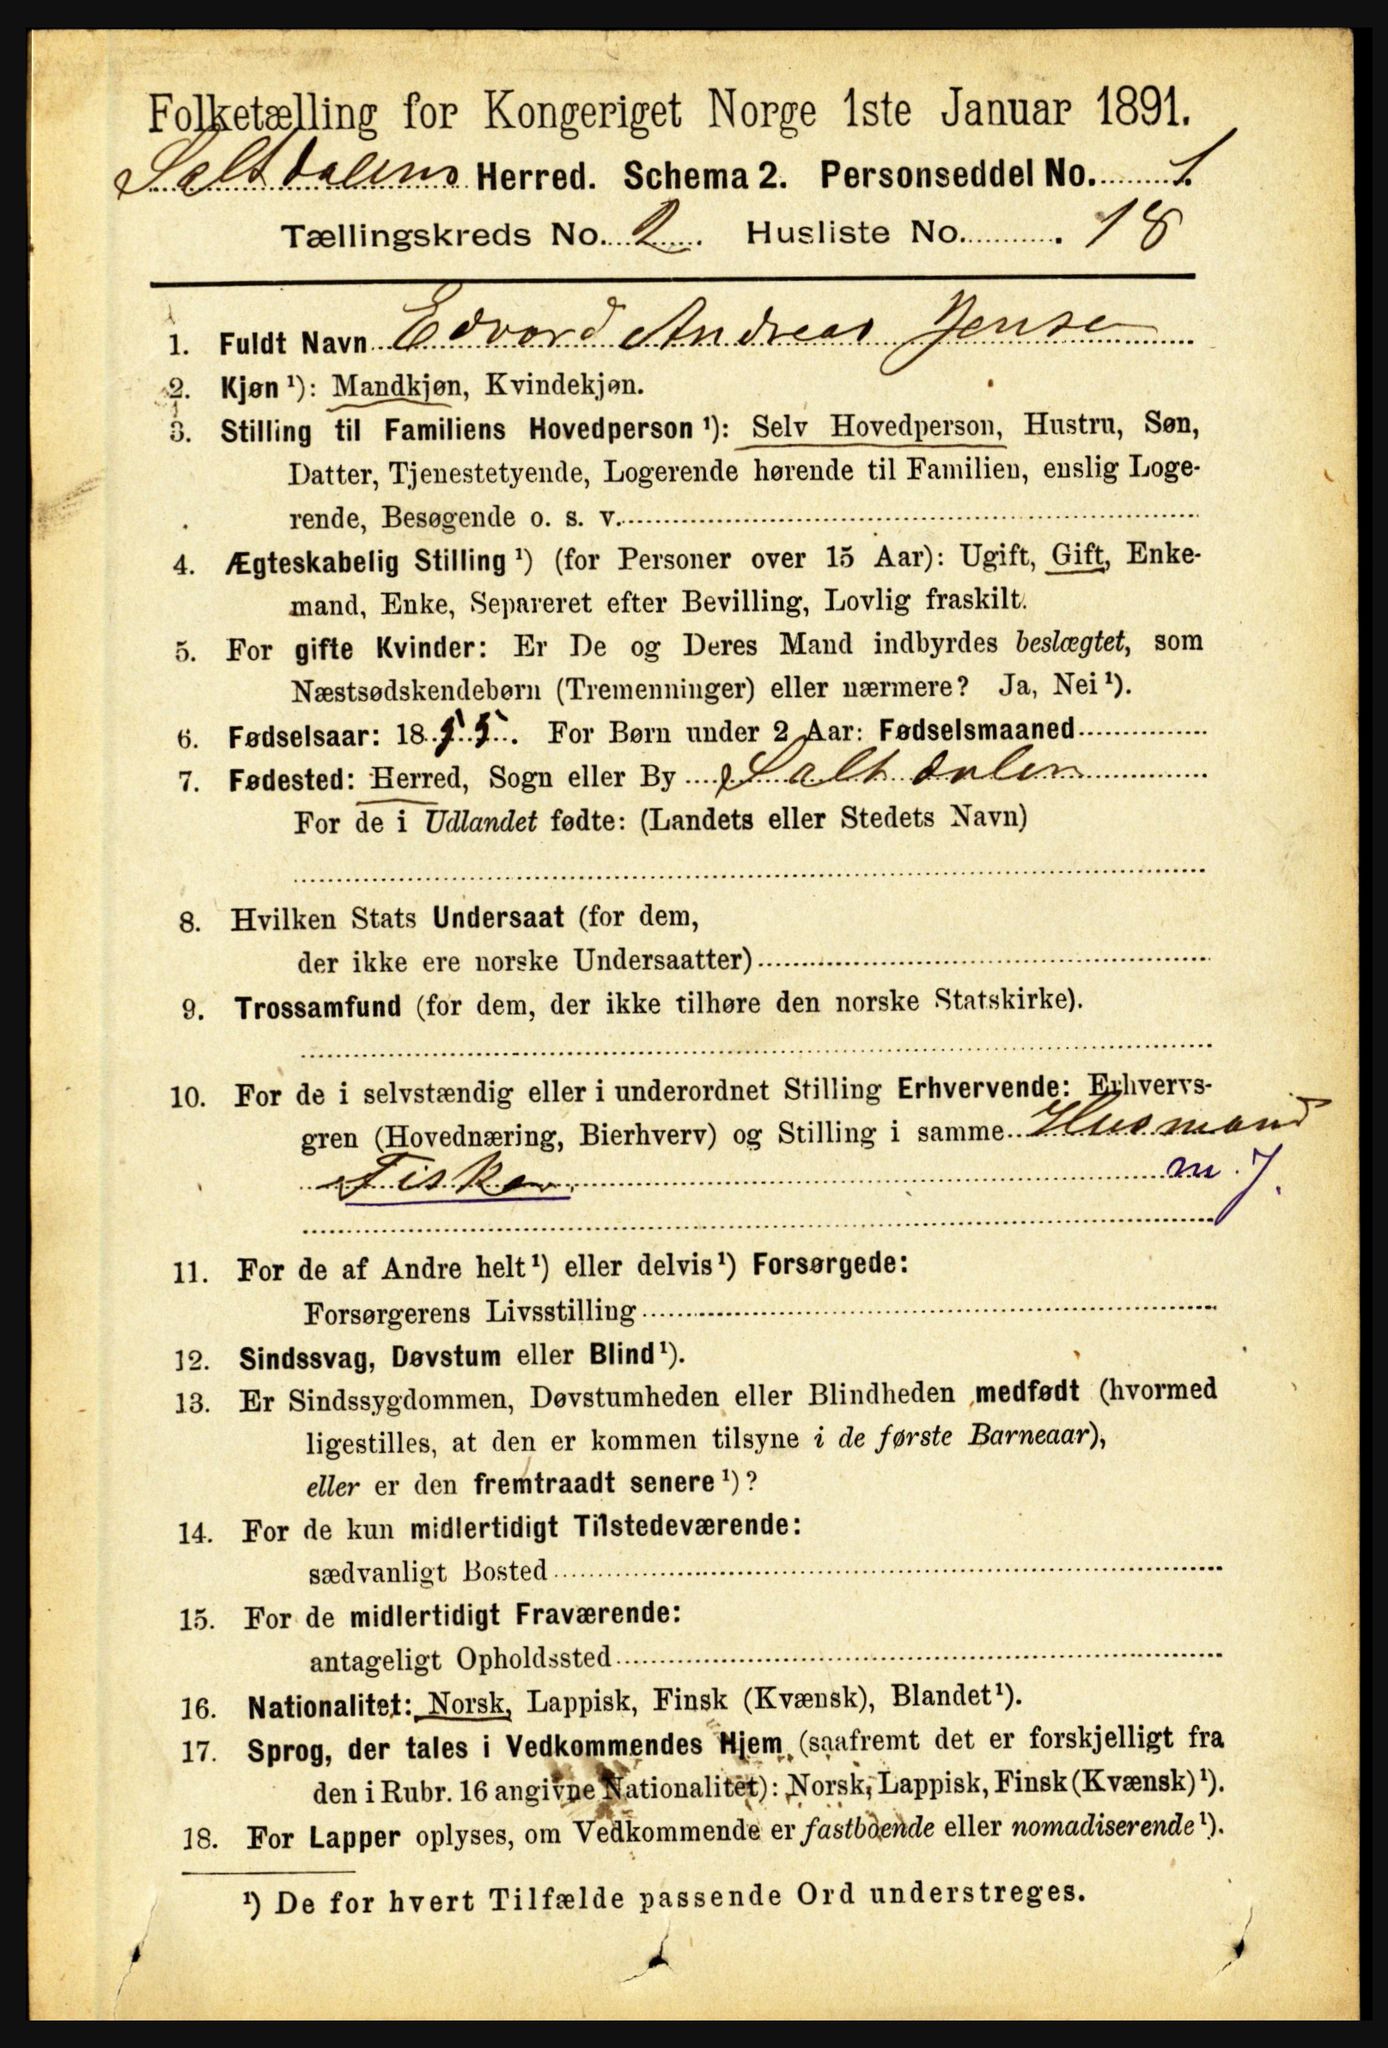 Folketælling for Kongeriget Norge 1ste Januar 1891.
Saltdalens Herred. Schema 2. Personseddel No. 1.
Tællingskreds No. 2. Husliste No. 18
1. Fuldt Navn Edvard Andreas Jense
2. Kjøn ¹): Mandkjøn, Kvindekjøn.
3. Stilling til Familiens Hovedperson ¹): Selv Hovedperson, Hustru, Søn,
Datter, Tjenestetyende, Logerende hørende til Familien, enslig Loge-
rende, Besøgende o. s. v.
4. Ægteskabelig Stilling ¹) (for Personer over 15 Aar): Ugift, Gift, Enke-
mand, Enke, Separeret efter Bevilling, Lovlig fraskilt.
5. For gifte Kvinder: Er De og Deres Mand indbyrdes beslægtet, som
Næstsødskendebørn (Tremenninger) eller nærmere? Ja, Nei ¹).
6. Fødselsaar: 1855. For Børn under 2 Aar: Fødselsmaaned
7. Fødested: Herred, Sogn eller By Saltdalen
For de i Udlandet fødte: (Landets eller Stedets Navn)
8. Hvilken Stats Undersaat (for dem,
der ikke ere norske Undersaatter)
9. Trossamfund (for dem, der ikke tilhøre den norske Statskirke).
10. For de i selvstændig eller i underordnet Stilling Erhvervende: Erhvervs-
gren (Hovednæring, Bierhverv) og Stilling i samme Husmand
Fisker m. J.
11. For de af Andre helt ¹) eller delvis ¹) Forsørgede:
Forsørgerens Livsstilling
12. Sindssvag, Døvstum eller Blind ¹).
13. Er Sindssygdommen, Døvstumheden eller Blindheden medfødt (hvormed
ligestilles, at den er kommen tilsyne i de første Barneaar),
eller er den fremtraadt senere ¹)?
14. For de kun midlertidigt Tilstedeværende:
sædvanligt Bosted
15. For de midlertidigt Fraværende:
antageligt Opholdssted
16. Nationalitet: Norsk, Lappisk, Finsk (Kvænsk), Blandet ¹).
17. Sprog, der tales i Vedkommendes Hjem (saafremt det er forskjelligt fra
den i Rubr. 16 angivne Nationalitet): Norsk, Lappisk, Finsk (Kvænsk) ¹).
18. For Lapper oplyses, om Vedkommende er fastboende eller nomadiserende ¹).
¹) De for hvert Tilfælde passende Ord understreges.